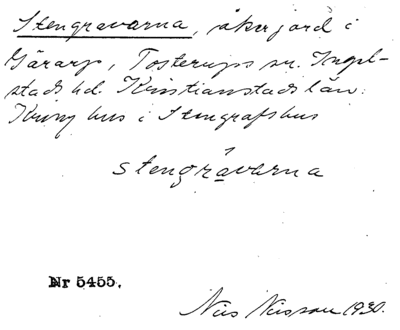 Stengravarna, åkerjord i
Gärarp, Tosterups sn. Ingel-
stads hd. Kristianstads län.
Kring hus i Stengrafshus
stengrávarna
Nr 5455.
Nils Nilsson 1930.